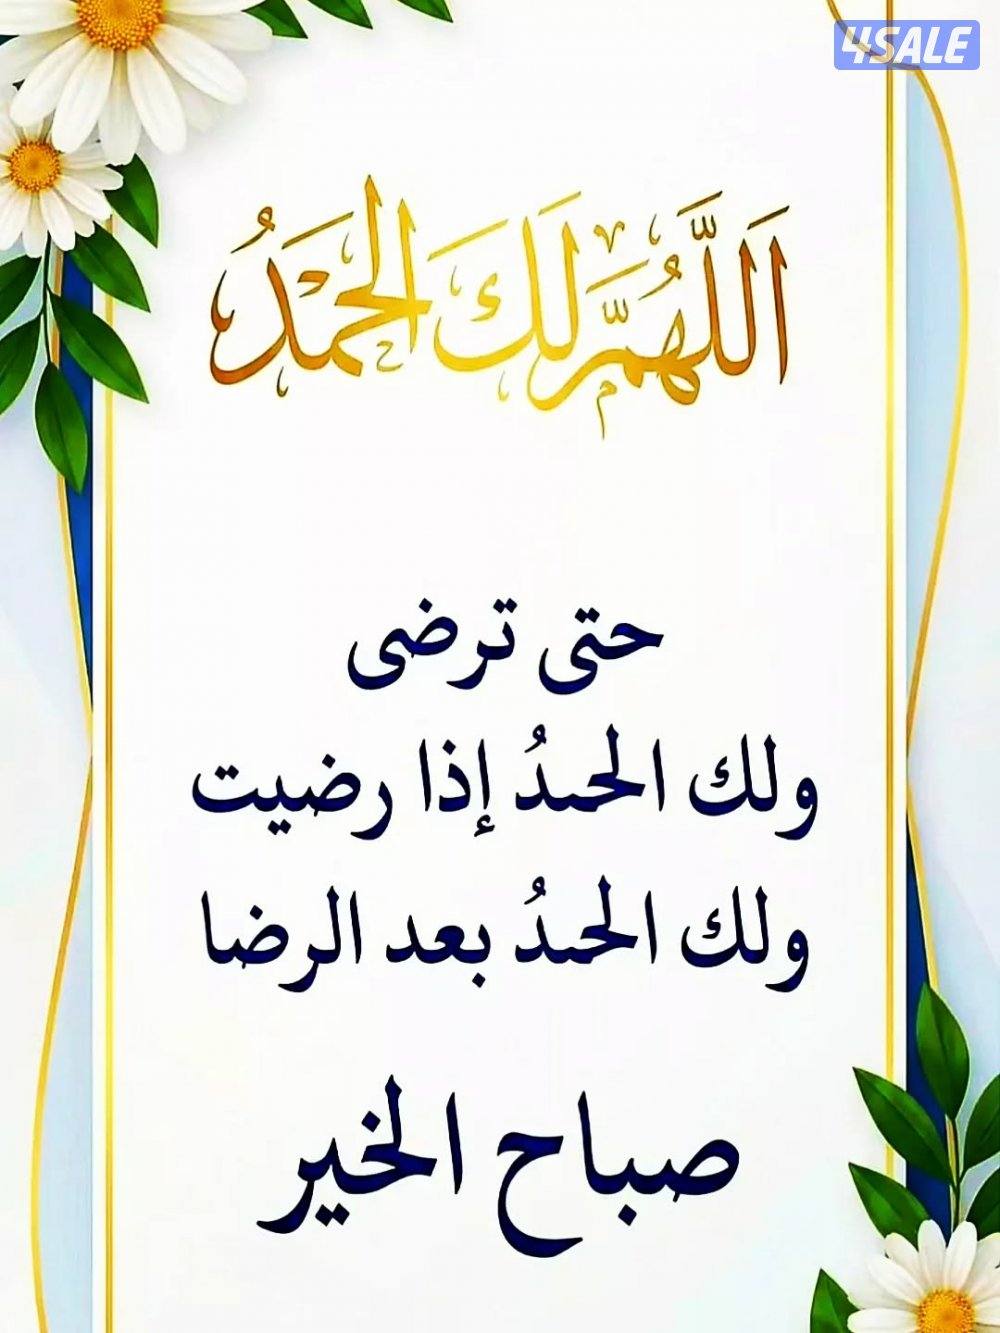 4SALE
اَللَّهُمَّ لَكَ الحَمَدُ
حتى ترضى
ولك الحمدُ إذا رضيت
ولك الحمدُ بعد الرضا
صباح الخير